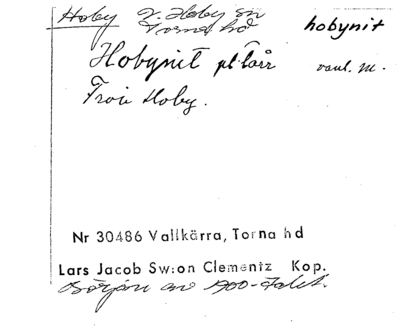 Hoby V. Hoby sn
Torna hd
hobynit
Hobynit pl. tårr
vanl. m.
Från Hoby.
Nr 30486 Vallkärra, Torna hd
Lars Jacob Sw:on Clementz Kop.
Början av 1900-talet.